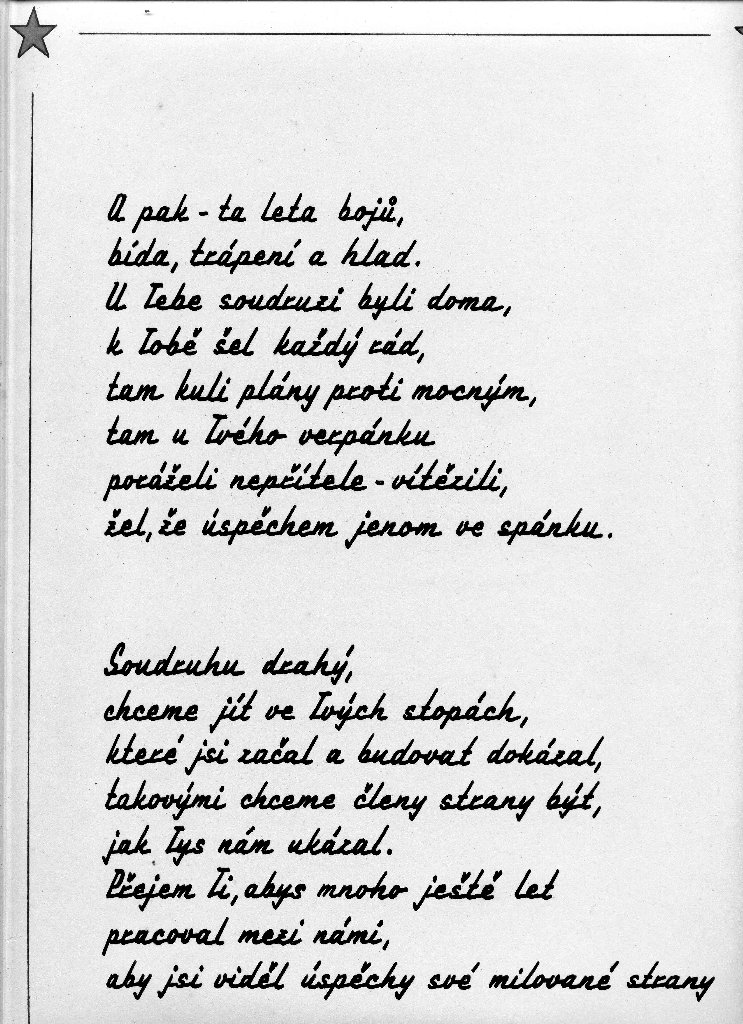 A pak - ta leta bojů,
bída, trápení a hlad.
U Tebe soudruzi byli doma,
k Tobě šel každý rád,
tam kuli plány proti mocným,
tam u Tvého verpánku
poráželi nepřítele - vítězili,
žel, že úspěchem jenom ve spánku.
Soudruhu drahý,
chceme jít ve Tvých stopách,
které jsi začal a budovat dokázal,
takovými chceme členy strany být,
jak Tys nám ukázal.
Přejem Ti, abys mnoho ještě let
pracoval mezi námi,
aby jsi viděl úspěchy své milované strany